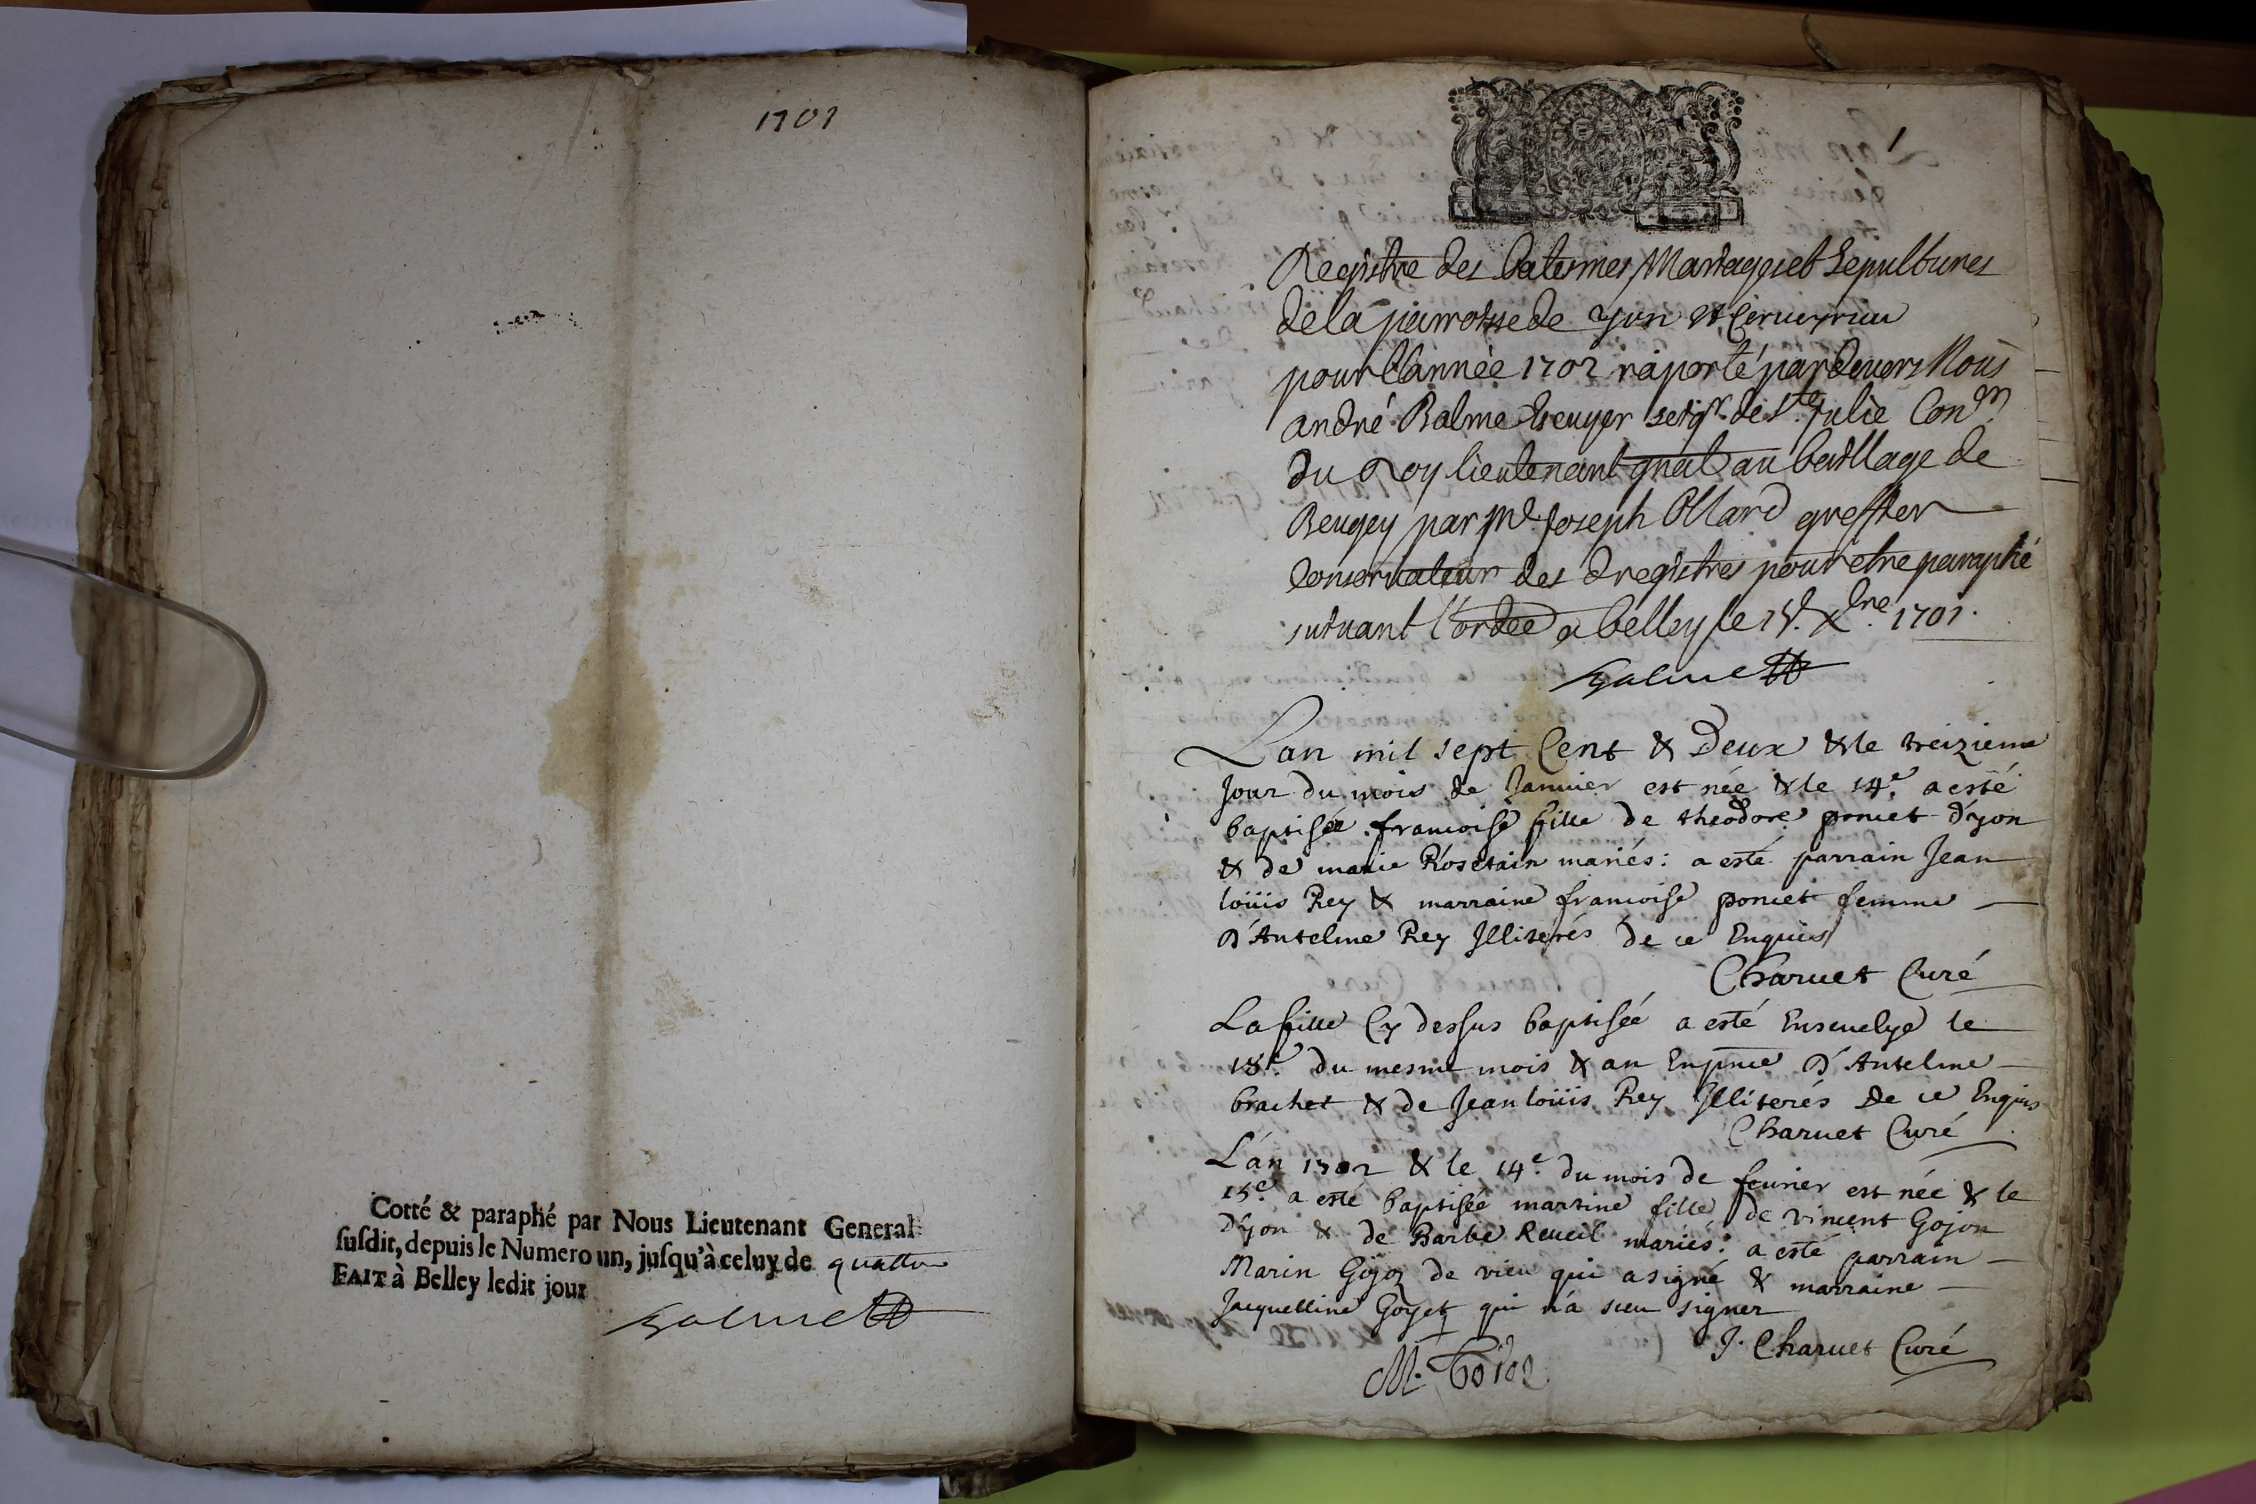 1701
Cotté & paraphé par Nous Lieutenant General
susdit, depuis le Numero un, jusqu'à celuy de quattre
FAIT à Belley ledit jour
Balme
1
Registre des batesmes Mariages et Sepultures
de la parroisse de yon & Cerueyrieu
pour l'année 1702 raporté pardeuers Nous
andré Balme Escuyer seigr. de Ste Julie Coner
du Roy lieutenant gnal au baillage de
Beugey par Me Joseph Ollard greffier
Conseruateur des dregistres pour etre paraphé
suiuant l'ordce a belley le 15e Xbre 1701.
Balme
L'an mil sept Cent & Deux & le treizieme
Jour du mois de Januier est née & le 14e. a esté
baptisée francoise fille de theodore poncet d'yon
& de marie Rosetain mariés: a esté parrain Jean
loüis Rey & marraine francoise poncet femme
D'Antelme Rey Jlliterés de ce Enquis
Charuet Curé
La fille Cy dessus baptisée a esté Enseuelye le
18e. du mesme mois & an Enpnce D'Antelme
brachet & de Jean loüis Rey Jlliterés De ce Enquis
Charuet Curé
L'an 1702 & le 14e. du mois de feurier est née & le
15e. a esté baptisée martine fille de vincent Gojon
D'yon & de Barbe Recueil mariés: a esté parrain
Marin Gojoz de vieu qui a signé & marraine
Jacquelline Goyet qui n'a sceu signer
J. Charuet Curé
M. Goioz